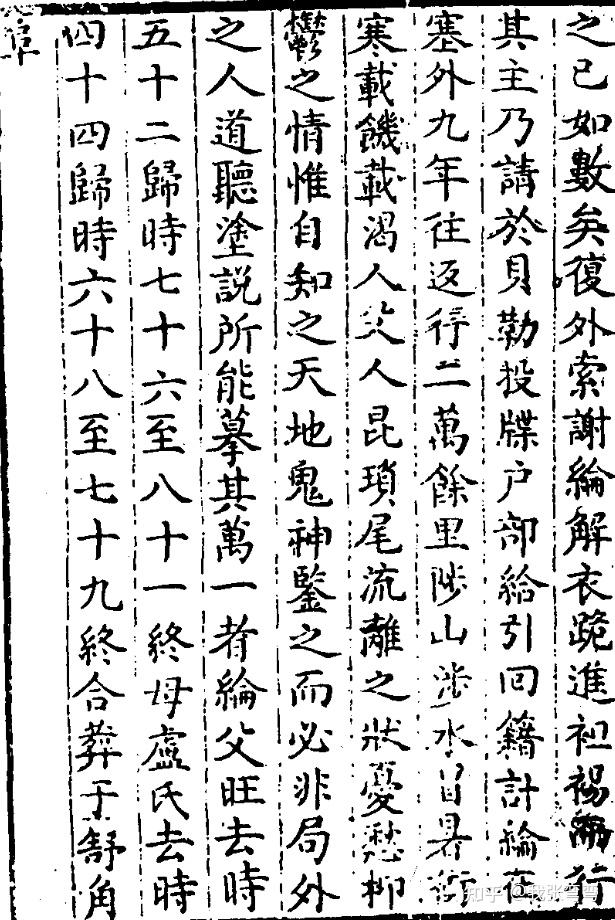 之已如數矣復外索謝綸解衣跪進袒裼而行
其主乃請於貝勒投牒户部給引回籍計綸在
塞外九年往返行二萬餘里陟山涉水冒暑衝
寒載饑載渴人父人昆瑣尾流離之狀憂愁抑
鬱之情惟自知之天地鬼神鑒之而必非局外
之人道聽塗説所能摹其萬一者綸父旺去時
五十二歸時七十六至八十一終母盧氏去時
四十四歸時六十八至七十九終合葬于舒角
知乎